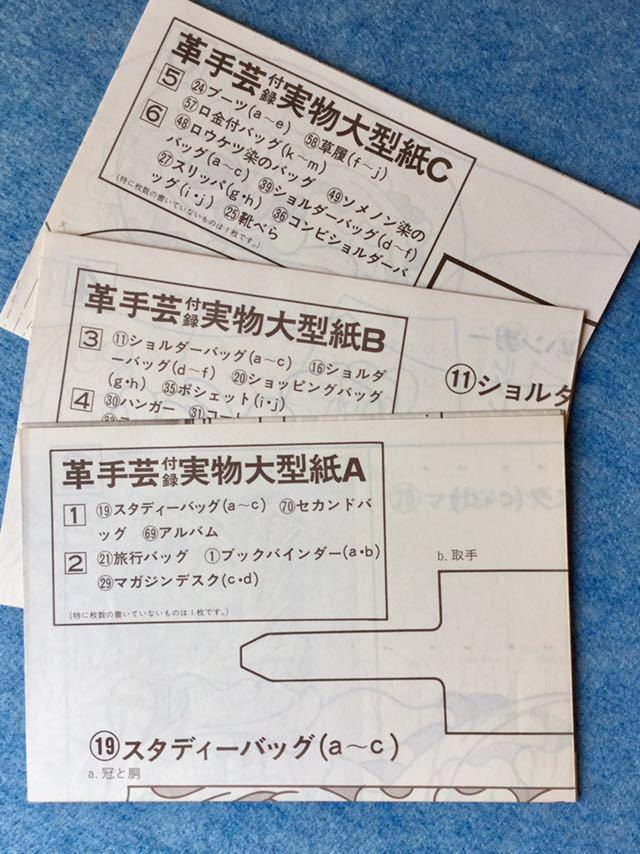 革手芸付録実物大型紙C
5 ㉔ブーツ(a～e) ㊽草履(f～j)
㊼口金付バッグ(k～m)
6 ㊽ロウケツ染のバッグ ㊾ソメノン染の
バッグ(a～c) ㊴ショルダーバッグ(d～f)
㉗スリッパ(g・h) ㊱コンビショルダーバ
ッグ(i・j) ㉕靴べら
(特に枚数の書いていないものは1枚です。)
革手芸付録実物大型紙B
3 ⑪ショルダーバッグ(a～c) ⑯ショルダ
ーバッグ(d～f) ⑳ショッピングバッグ
(g・h) ㉟ポシェット(i・j)
4 ㉚ハンガー ㉛コート
⑪ショルダ
革手芸付録実物大型紙A
1 ⑲スタディーバッグ(a～c) 70セカンドバ
ッグ 69アルバム
2 ㉑旅行バッグ ①ブックバインダー(a・b)
㉙マガジンデスク(c・d)
(特に枚数の書いていないものは1枚です。)
b. 取手
⑲スタディーバッグ(a～c)
a. 冠と胴